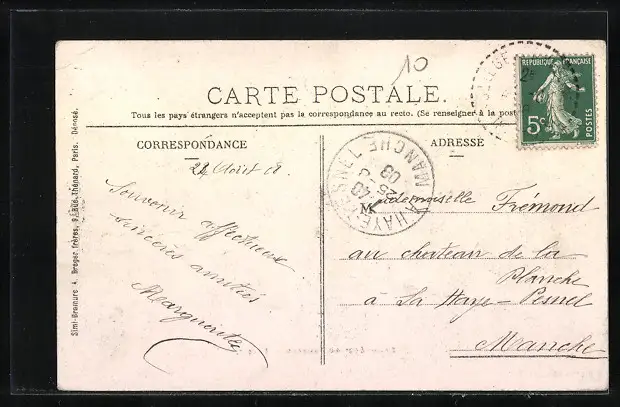 10
CARTE POSTALE.
Tous les pays étrangers n'acceptent pas la correspondance au recto. (Se renseigner à la poste
REPUBLIQUE FRANÇAISE
5c
POSTES
CORRESPONDANCE
ADRESSE
Août
Souvenir affectueux
sincères amitiés
Marguerite
HAYE PESNEL
MANCHE
Mademoiselle Frémond
au chateau de la
Planche
à La Haye-Pesnel
Manche
Simi-Bromure A. Breger frères, 9, Rue Thénard, Paris. Déposé.